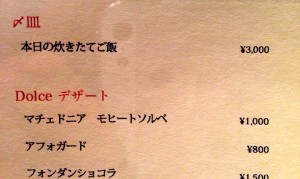 〆皿
本日の炊きたてご飯 ¥3,000
Dolce デザート
マチェドニア モヒートソルベ ¥1,000
アフォガード ¥800
フォンダンショコラ ¥1,500